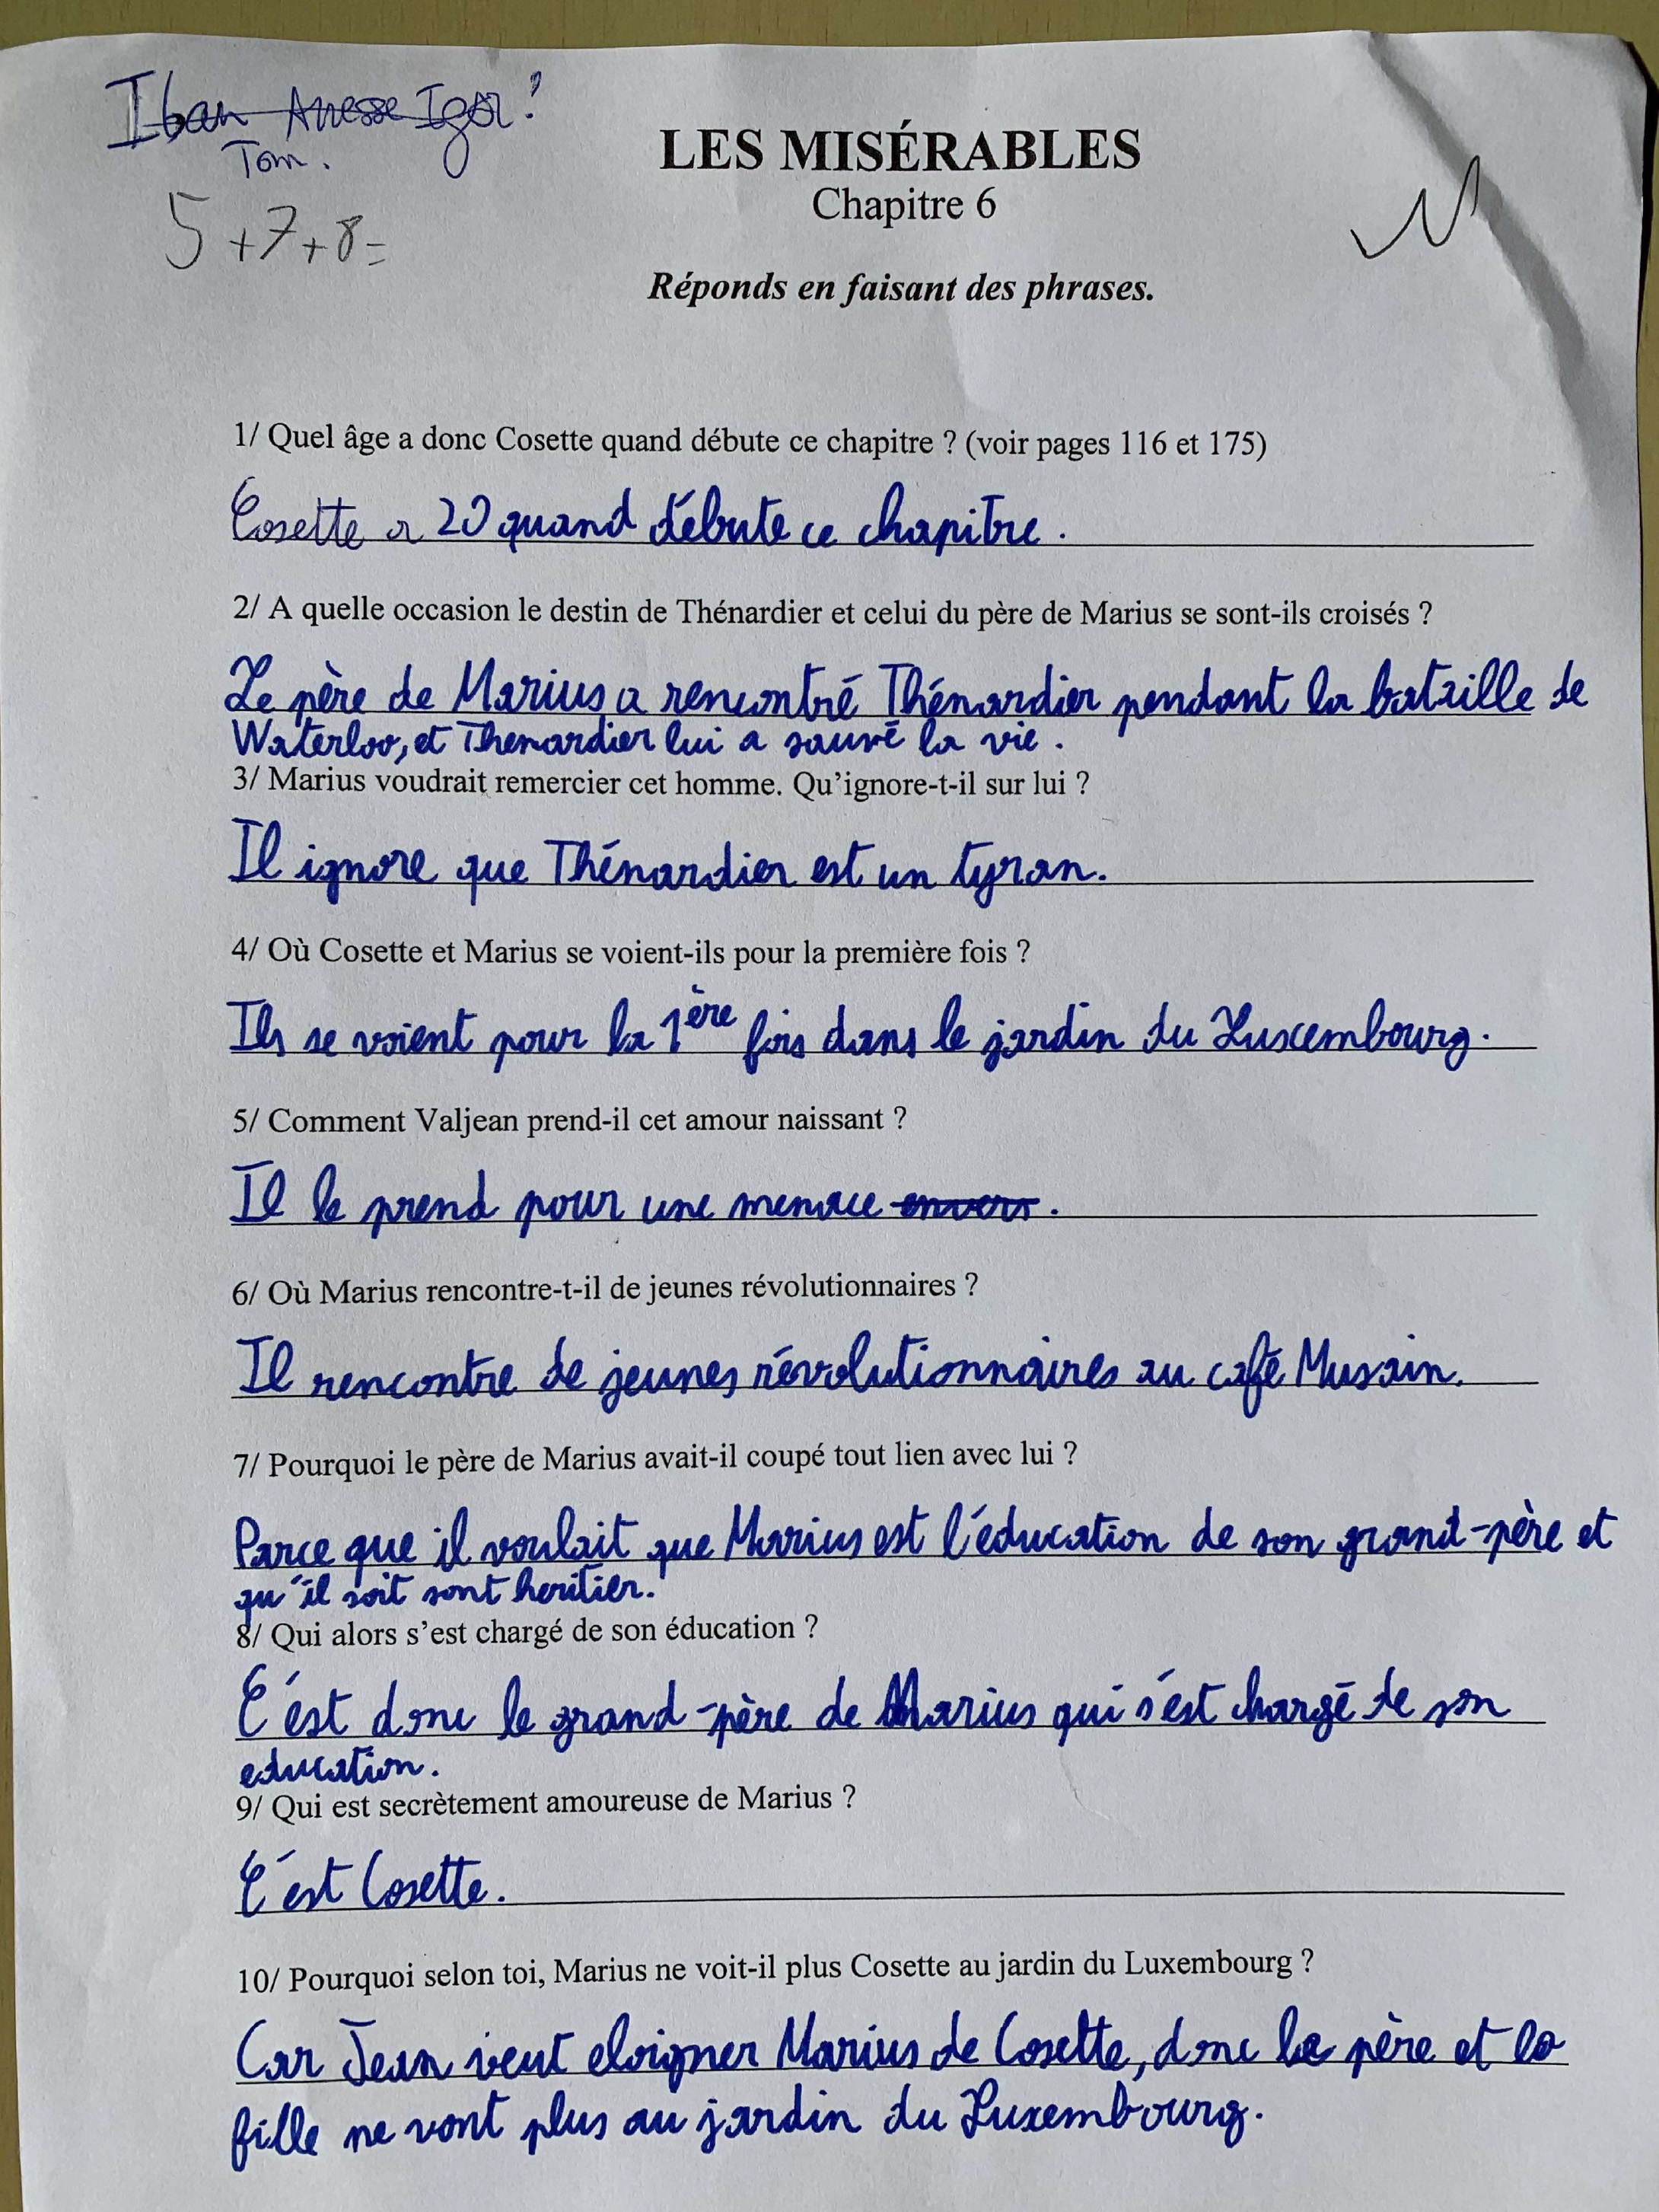 Iban Anesse Igor!
Tom.
5+7+8=
LES MISÉRABLES
Chapitre 6
Réponds en faisant des phrases.
1/ Quel âge a donc Cosette quand débute ce chapitre ? (voir pages 116 et 175)
Cosette a 20 quand débute ce chapitre.
2/ A quelle occasion le destin de Thénardier et celui du père de Marius se sont-ils croisés ?
Le père de Marius a rencontré Thénardier pendant la bataille de
Waterloo, et Thenardier lui a sauvé la vie.
3/ Marius voudrait remercier cet homme. Qu'ignore-t-il sur lui ?
Il ignore que Thénardier est un tyran.
4/ Où Cosette et Marius se voient-ils pour la première fois ?
Ils se voient pour la 1ère fois dans le jardin du Luxembourg.
5/ Comment Valjean prend-il cet amour naissant ?
Il le prend pour une menace envers.
6/ Où Marius rencontre-t-il de jeunes révolutionnaires ?
Il rencontre de jeunes révolutionnaires au café Musain.
7/ Pourquoi le père de Marius avait-il coupé tout lien avec lui ?
Parce que il voulait que Marius est l'éducation de son grand-père et
qu'il soit sont heritier.
8/ Qui alors s'est chargé de son éducation ?
C'est donc le grand-père de Marius qui s'est chargé de son
education.
9/ Qui est secrètement amoureuse de Marius ?
C'est Cosette.
10/ Pourquoi selon toi, Marius ne voit-il plus Cosette au jardin du Luxembourg ?
Car Jean veut eloigner Marius de Cosette, donc le père et la
fille ne vont plus au jardin du Luxembourg.